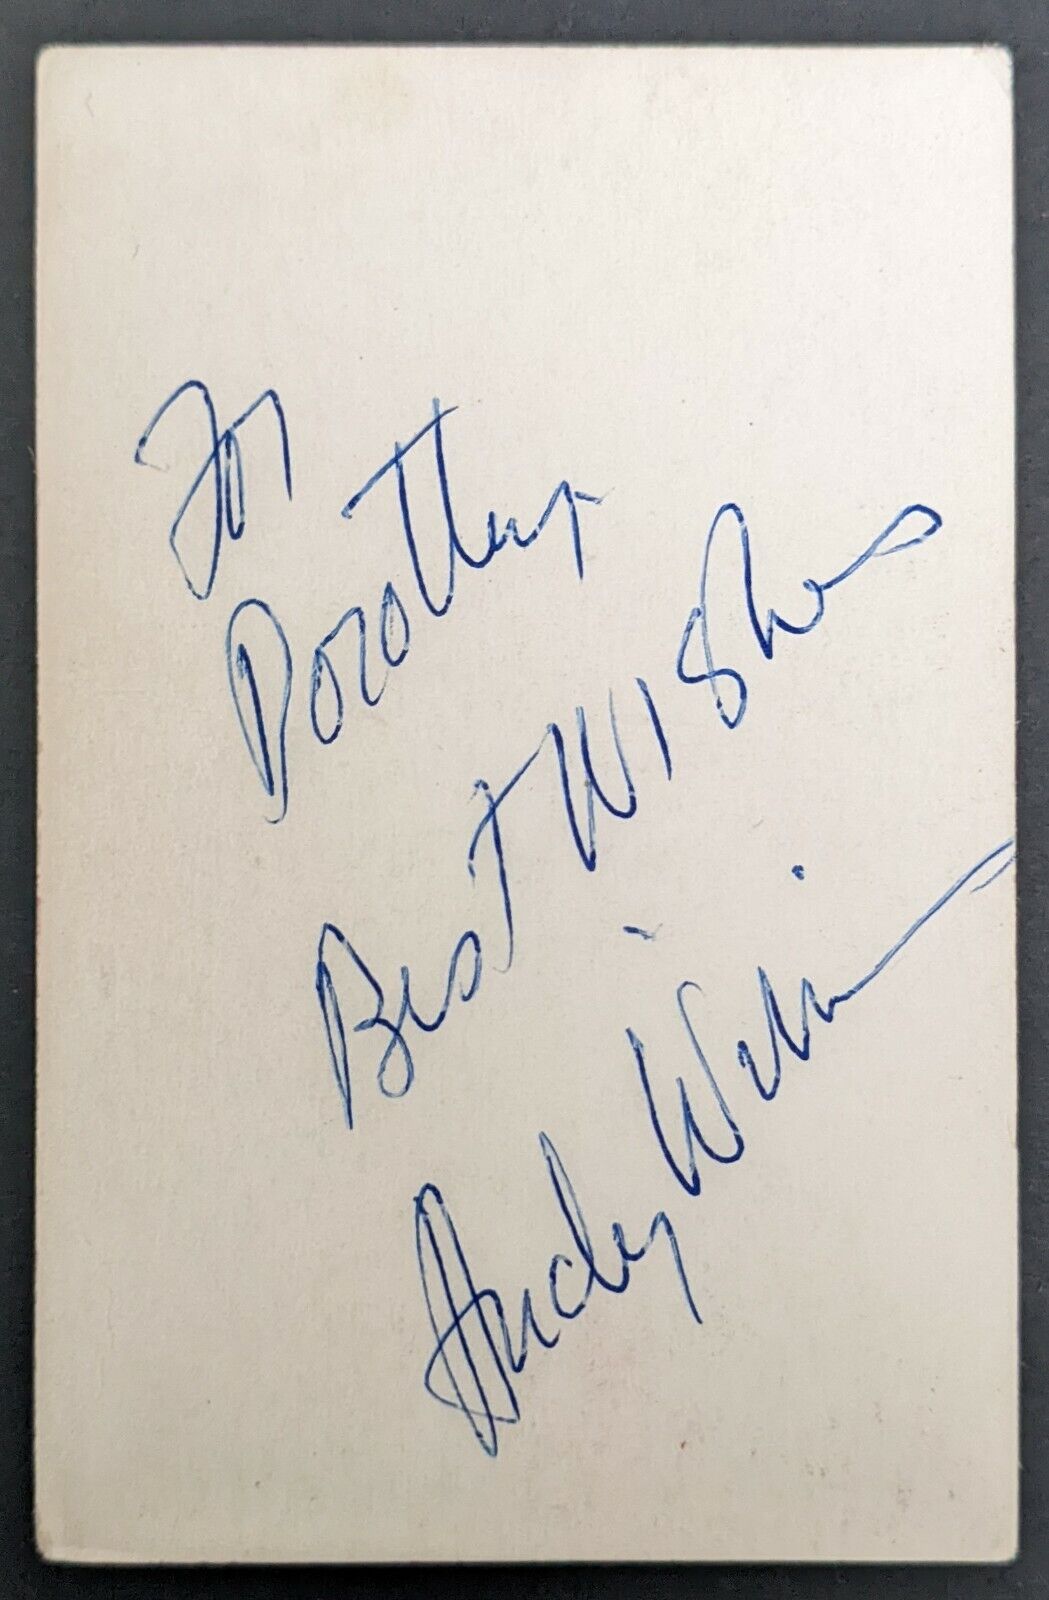 For
Dorothy
Best Wishes
Andy Williams